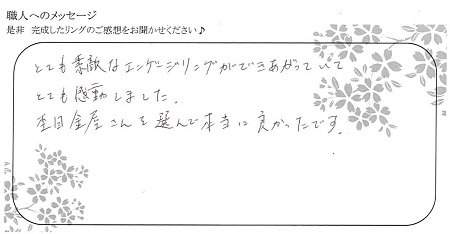 職人へのメッセージ
是非 完成したリングのご感想をお聞かせください♪
とても素敵なエンゲージリングができあがっていて
とても感動しました。
杢目金屋さんを選んで本当に良かったです。